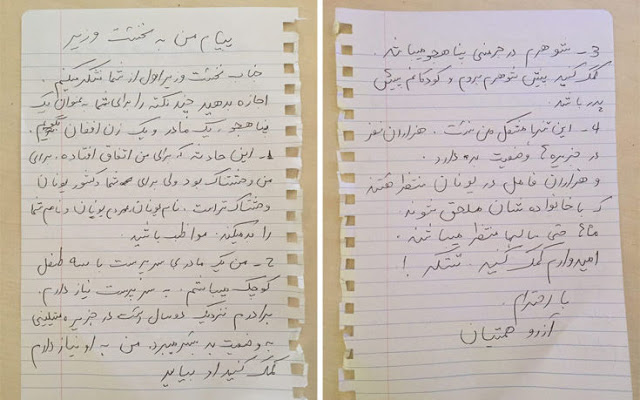 پیام من به نخست وزیر
جناب نخست وزیر اول از شما تشکر میکنم.
اجازه بدهید چند نکته را برای شما به عنوان یک
پناهجو، یک مادر و یک زن افغان بگویم.
1- این حادثه که برای من اتفاق افتاده، برای
من وحشتناک بود ولی برای شما کشور یونان
وحشتناک تر است. نام یونان مردم یونان و نام شما
را بد میکند. مواظب باشید.
2- من یک مادر بی سرپرست با سه طفل
کوچک میباشم. به سرپرست نیاز دارم.
برادرم نزدیک دو سال است در جزیره میتیلینی
به وضعیت بد بسر میبرد. من به او نیاز دارم
کمک کنید او بیاید
3- شوهرم در جرمنی پناهجو میباشد.
کمک کنید پیش شوهرم بروم و کودکانم پیش
پدر باشد.
4- این تنها مشکل من نیست. هزاران نفر
در جزیره ها وضعیت بد دارد.
و هزاران فامیل در یونان منتظر هستند
که با خانواده شان ملحق شوند
ماه ها حتی سالها منتظر میباشند.
امیدوارم کمک کنید. تشکر!
با احترام.
آرزو همتیان